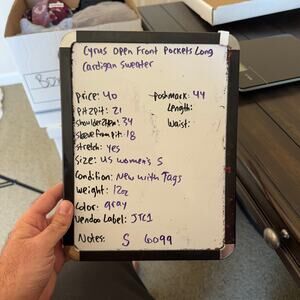 Cyrus Open Front Pockets Long
Cardigan Sweater
Price: 40
Poshmark: 44
Pit2pit: 21
Length:
Shoulder2Hem: 34
Waist:
Sleeve from pit: 18
Stretch: yes
Size: US women's S
Condition: New with Tags
Weight: 12oz
Color: gray
Vendoo Label: JTC1
Notes: S 6099